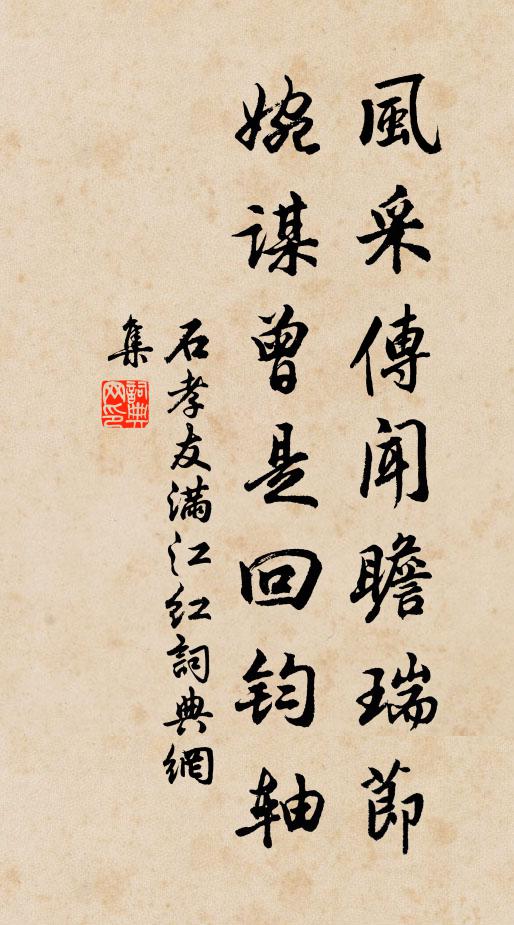 風采傳聞瞻瑞節
婉謀曾是回鈞軸
石孝友滿江紅詞典網
集
詞典網印